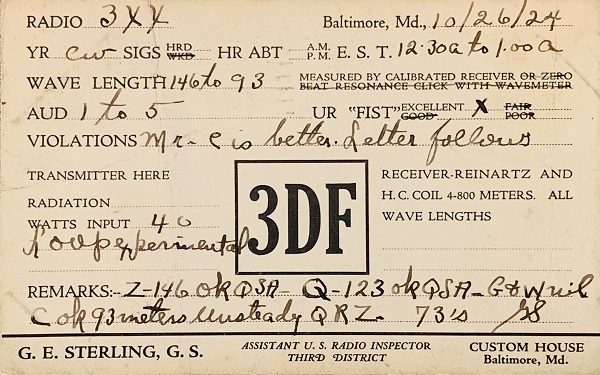 RADIO 3XX Baltimore, Md., 10/26/24
YR CW SIGS HRD WKD. HR ABT A.M. P.M. E. S. T. 12.30a to 1.00a
WAVE LENGTH 146 to 93 MEASURED BY CALIBRATED RECEIVER OR ZERO BEAT RESONANCE CLICK WITH WAVEMETER
AUD 1 to 5 UR "FIST" EXCELLENT GOOD X FAIR POOR
VIOLATIONS Mr - C is better. Letter follows
TRANSMITTER HERE
RADIATION
WATTS INPUT 40
3DF
RECEIVER-REINARTZ AND
H. C. COIL 4-800 METERS. ALL
WAVE LENGTHS
REMARKS:- Z-146 ok QSA - Q-123 ok QSA - G & W nil
C ok 93 meters unsteady QRZ - 73's GS
G. E. STERLING, G. S. ASSISTANT U. S. RADIO INSPECTOR CUSTOM HOUSE
THIRD DISTRICT Baltimore, Md.